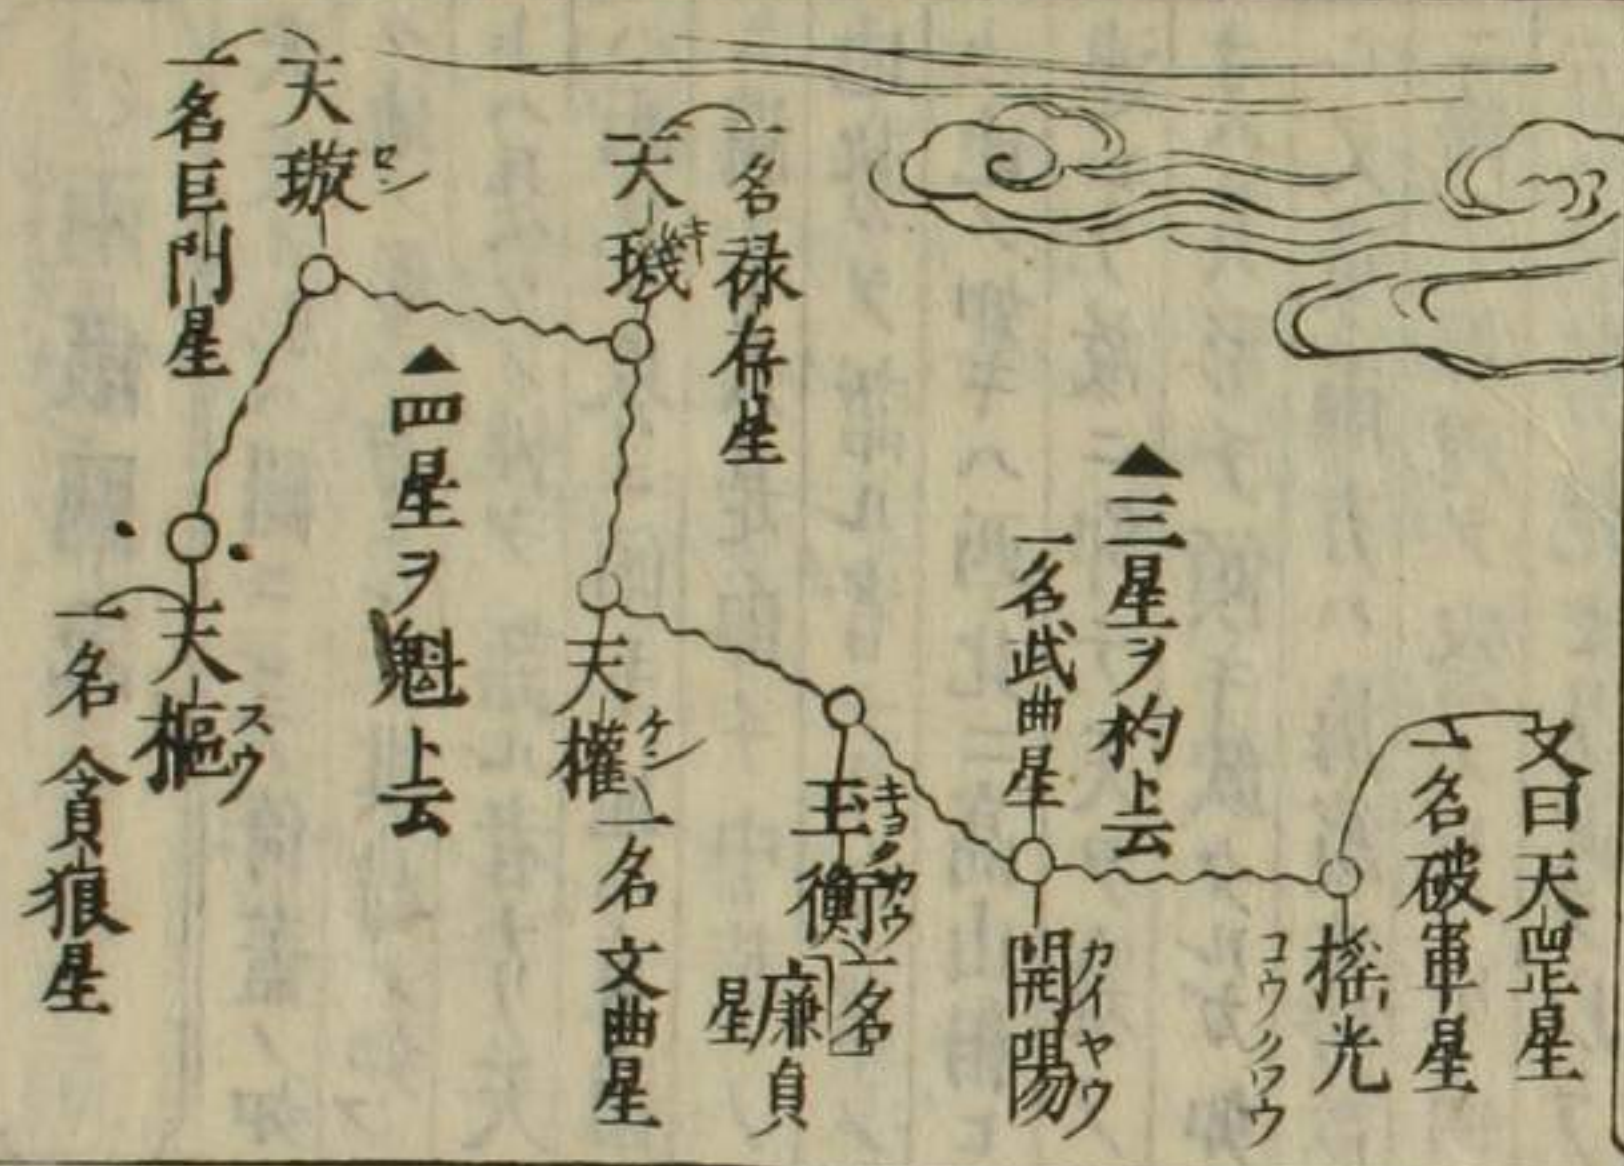 又曰天罡星
一名破軍星
揺光
コウクワウ
▲三星ヲ杓ト云
一名武曲星
開陽
カイヤウ
玉衡
キヨクカウ
一名
廉貞
星
一名禄存星
天璣
キ
天權
ケン
一名文曲星
▲四星ヲ魁ト云
天璇
セン
一名巨門星
天樞
スウ
一名貪狼星